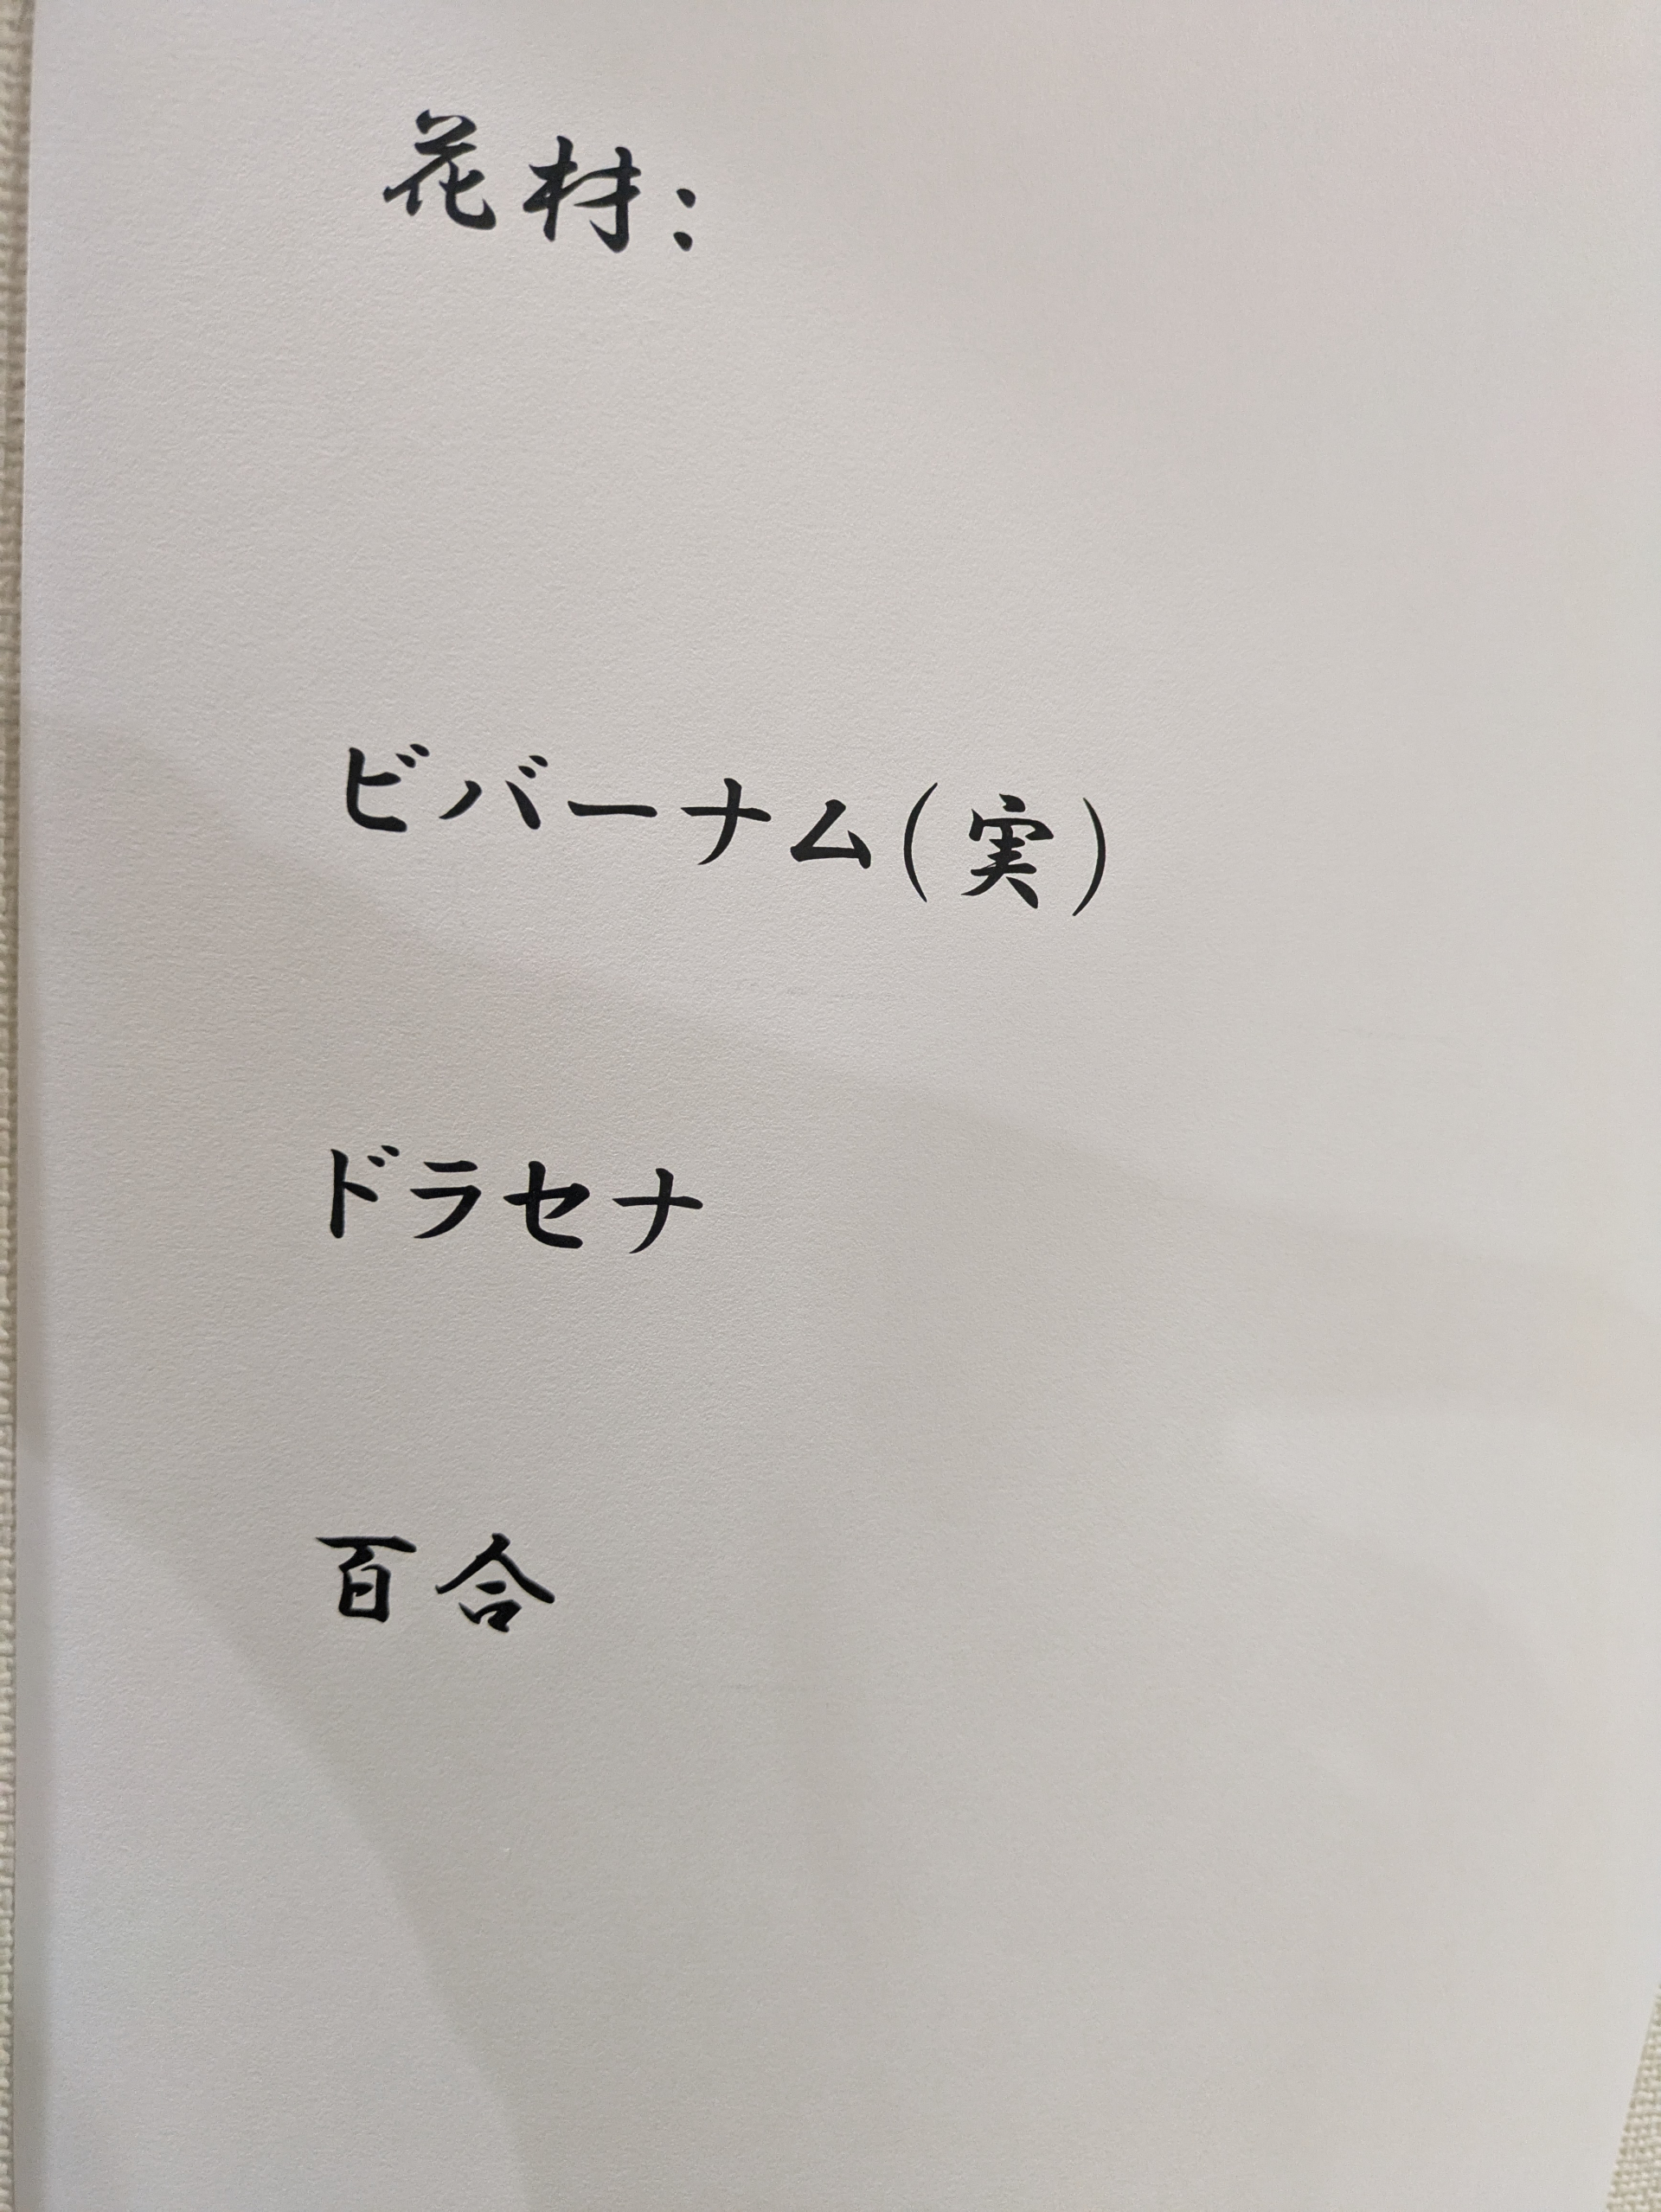 花材:
ビバーナム(実)
ドラセナ
百合